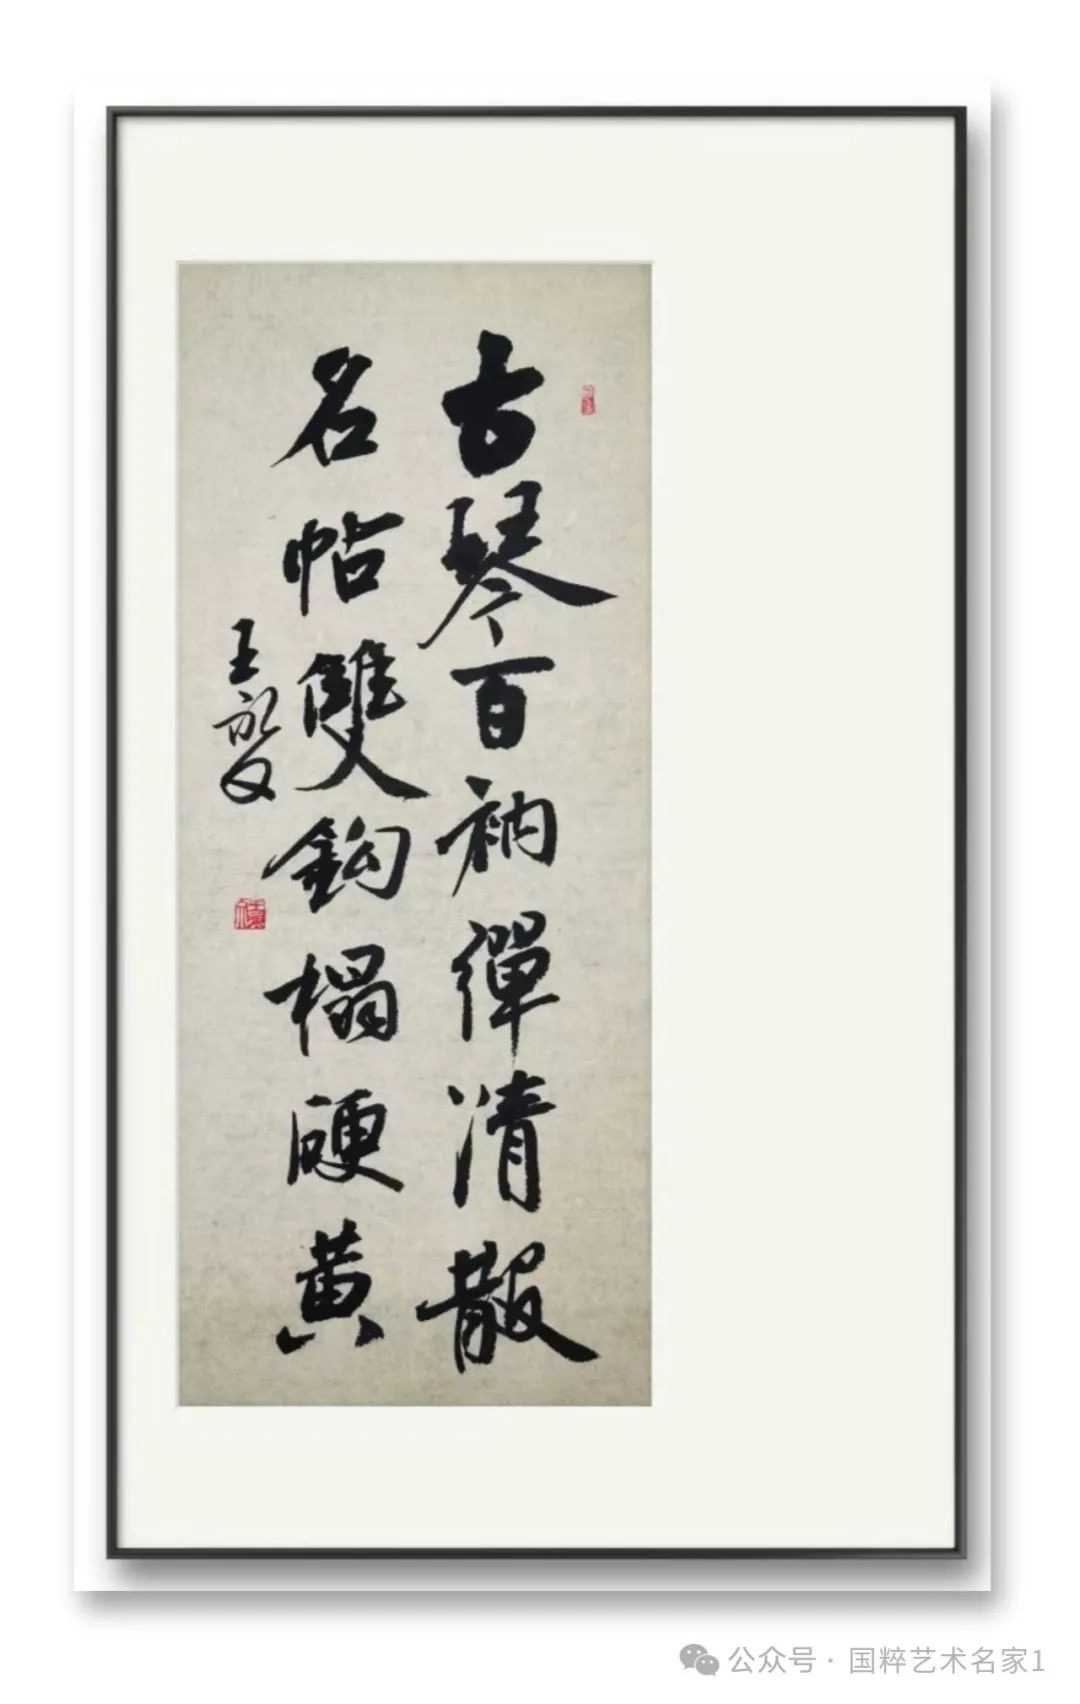 古琴百衲彈清散
名帖雙鈎榻硬黄
王
公众号 · 国粹艺术名家1